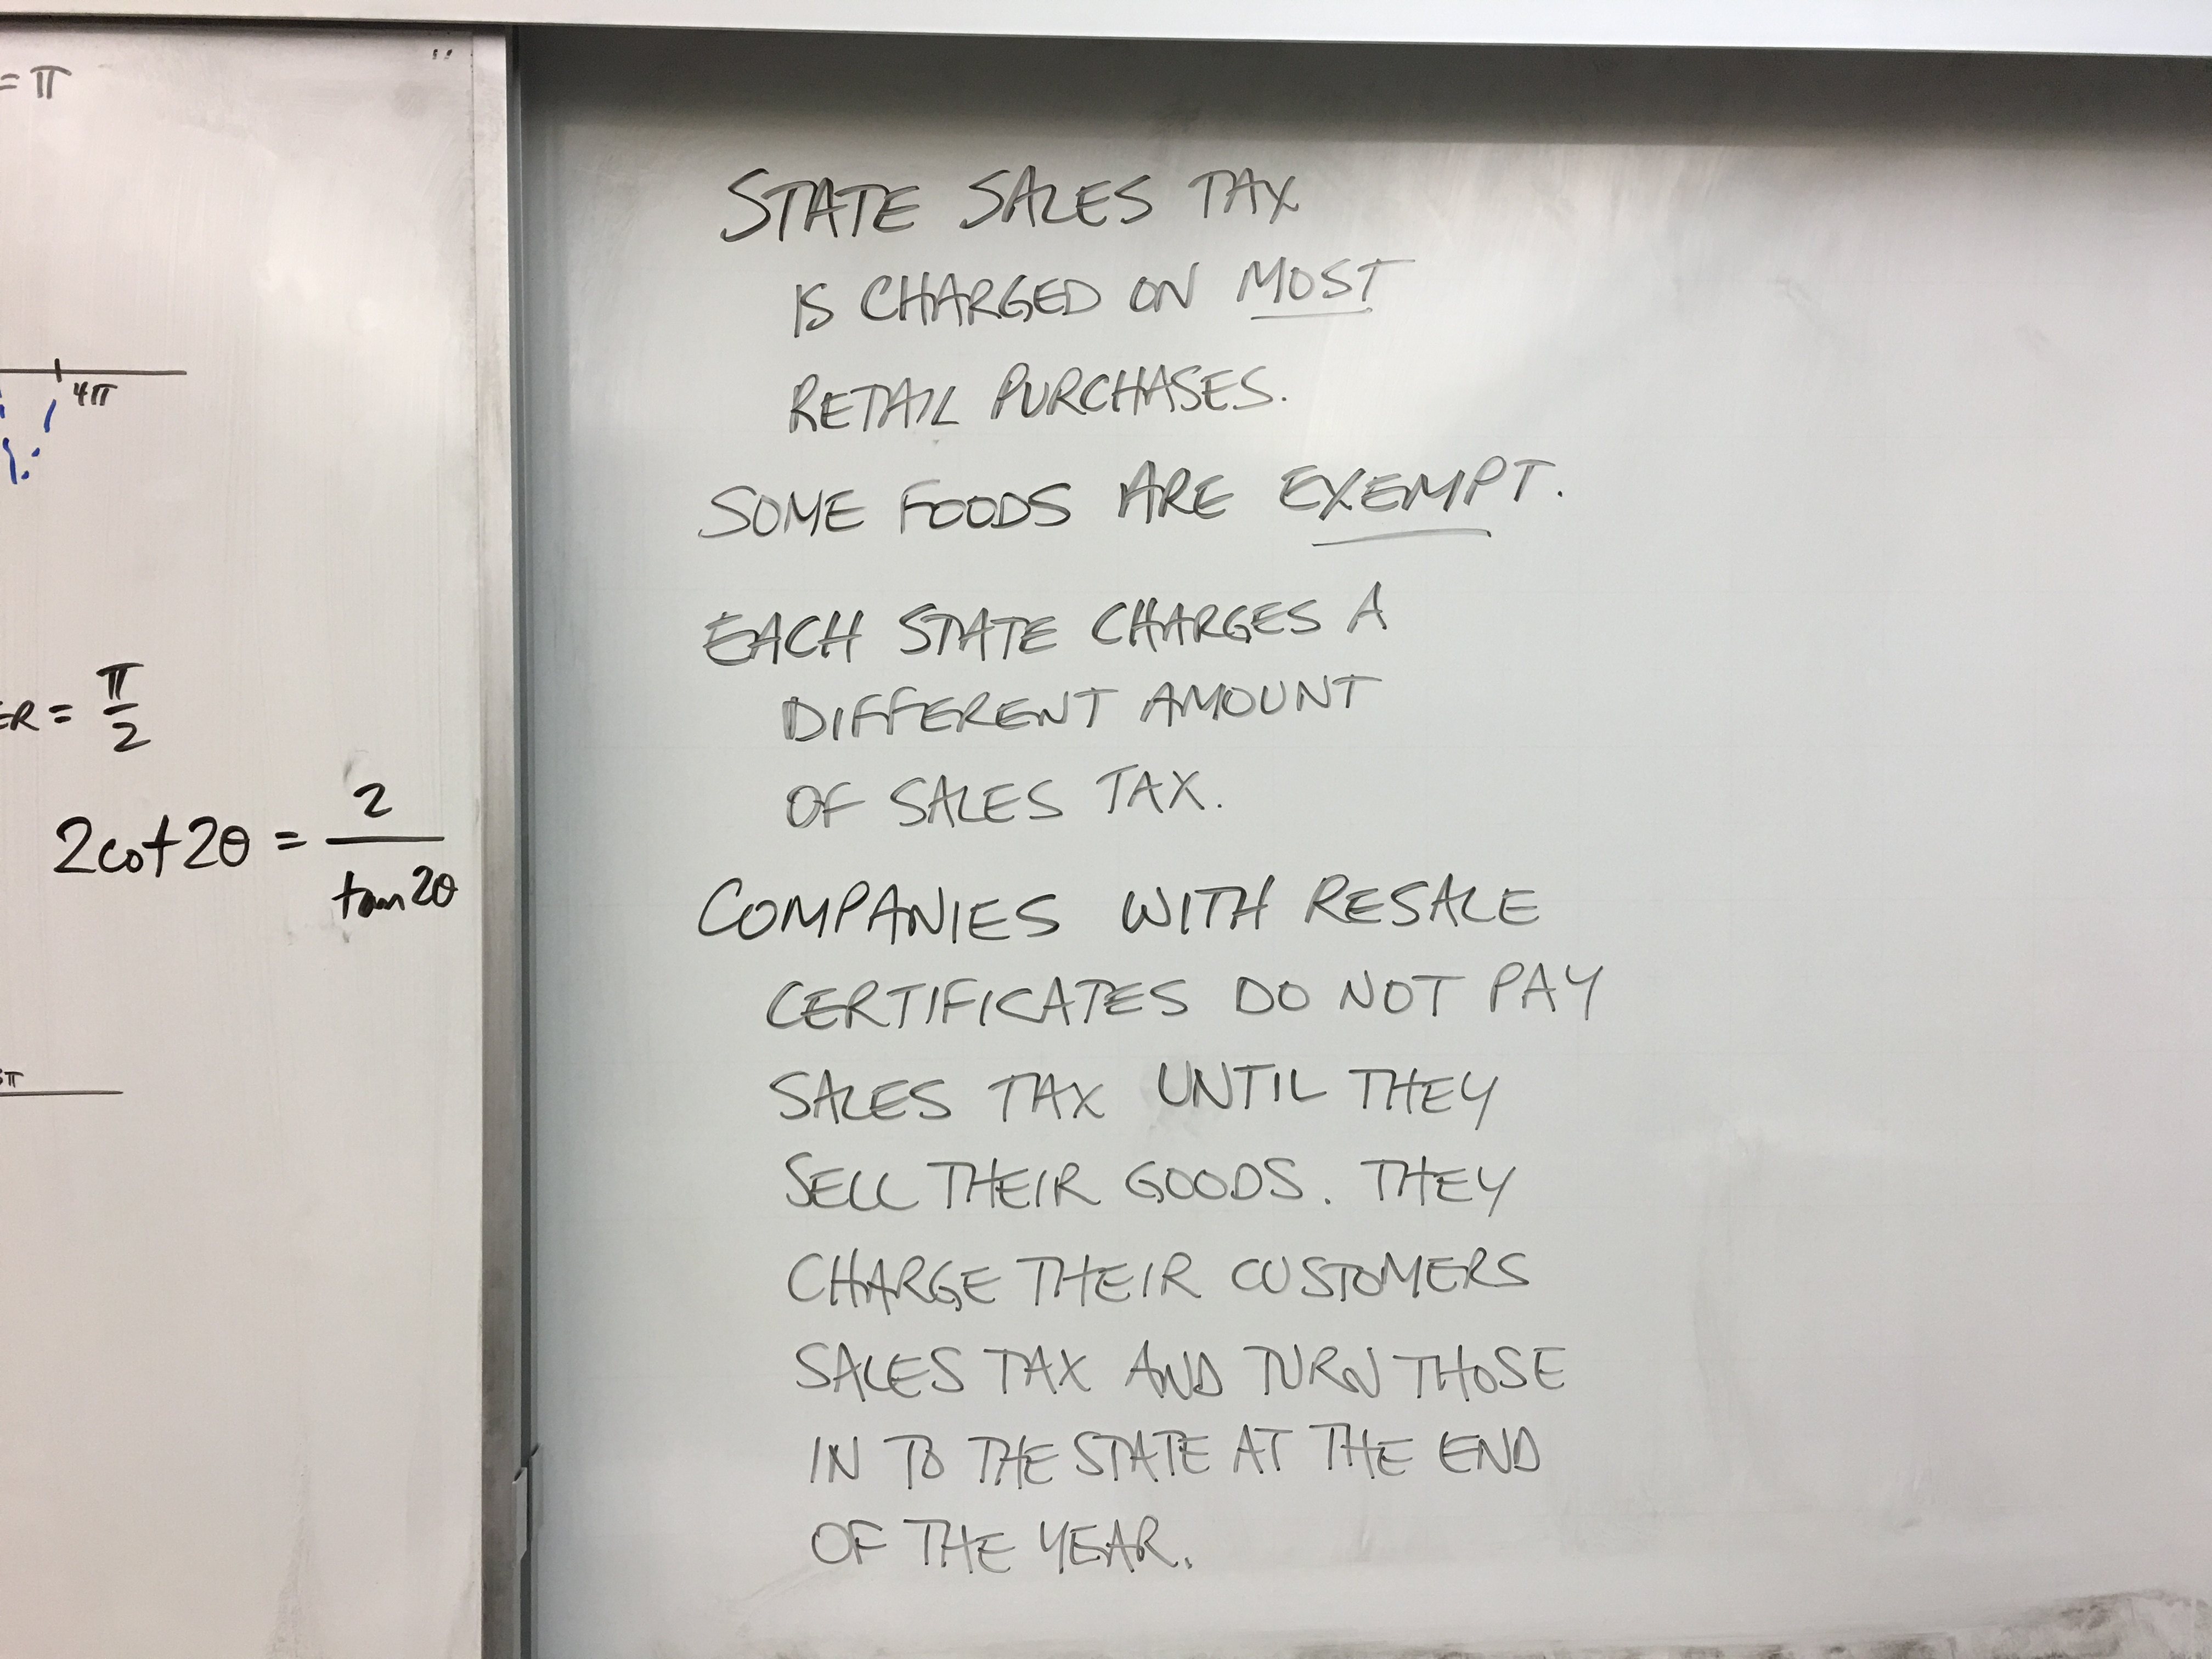 = π
4π
ER = π/2
2cot2θ = 2/tan2θ
STATE SALES TAX
IS CHARGED ON MOST
RETAIL PURCHASES.
SOME FOODS ARE EXEMPT.
EACH STATE CHARGES A
DIFFERENT AMOUNT
OF SALES TAX.
COMPANIES WITH RESALE
CERTIFICATES DO NOT PAY
SALES TAX UNTIL THEY
SELL THEIR GOODS. THEY
CHARGE THEIR CUSTOMERS
SALES TAX AND TURN THOSE
IN TO THE STATE AT THE END
OF THE YEAR.